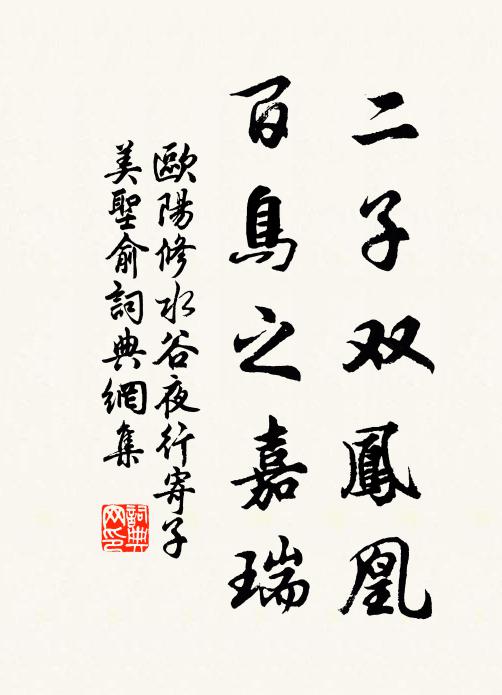 二子双鳳凰
百鳥之嘉瑞
歐陽修水谷夜行寄子
美聖俞詞典網集
詞典网印